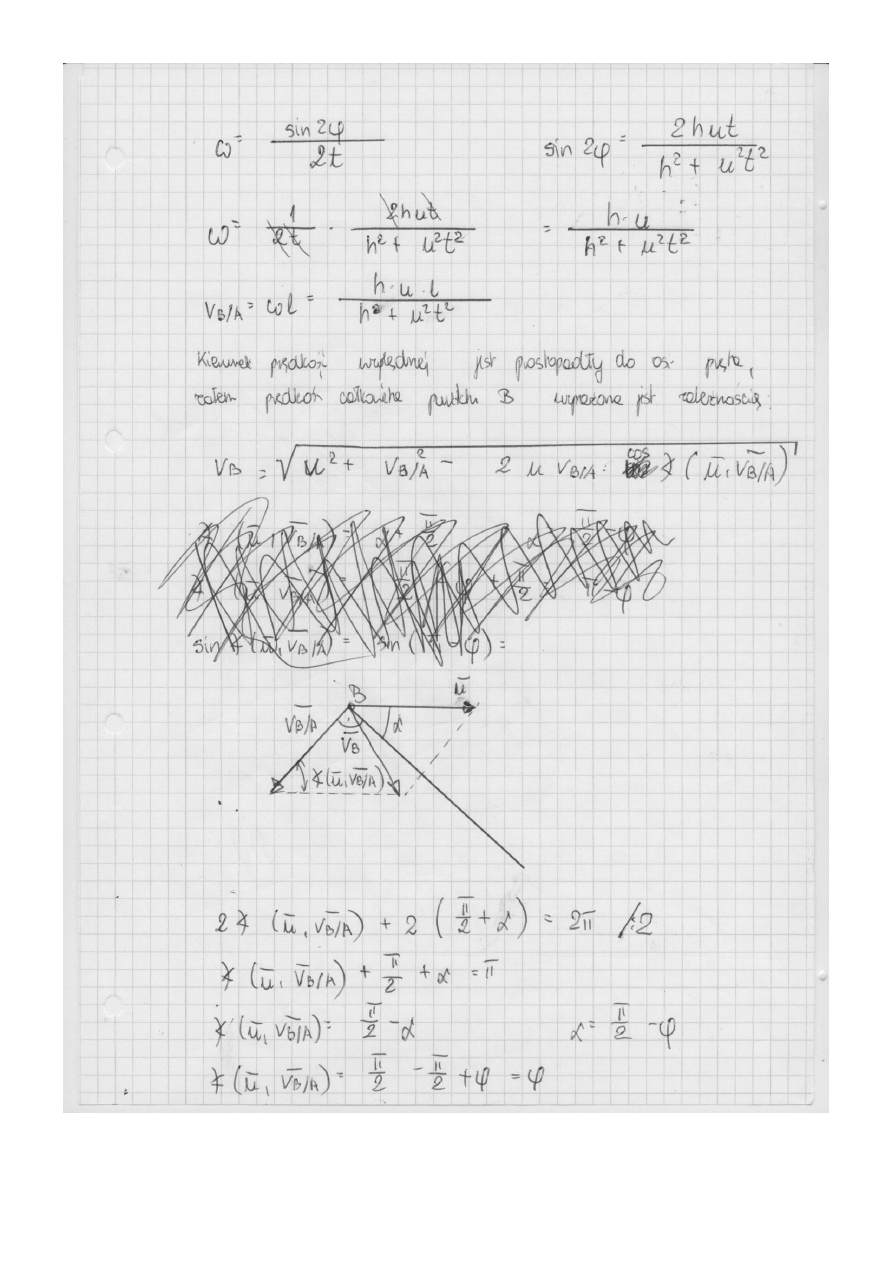 ω = sin 2φ / 2t    sin 2φ = 2hut / (h² + u²t²)
ω = 1 / 2t · 2hut / (h² + u²t²) = h·u / (h² + u²t²)
V_B/A = ωl = h·u·l / (h² + u²t²)
Kierunek prędkość względnej jest prostopadły do osi pręta,
zatem prędkość całkowita punktu B wyrażona jest zależnością:
V_B = √(u² + V_B/A² − 2 u V_B/A · cos ∡(ū, V̄_B/A))
sin ∡(ū, V̄_B/A) = sin ( φ) =
B ū
V̄_B/A α
V̄_B
∡(ū, V̄_B/A)
2∡(ū, V̄_B/A) + 2(π/2 + α) = 2π /:2
∡(ū, V̄_B/A) + π/2 + α = π
∡(ū, V̄_B/A) = π/2 − α    α = π/2 − φ
∡(ū, V̄_B/A) = π/2 − π/2 + φ = φ